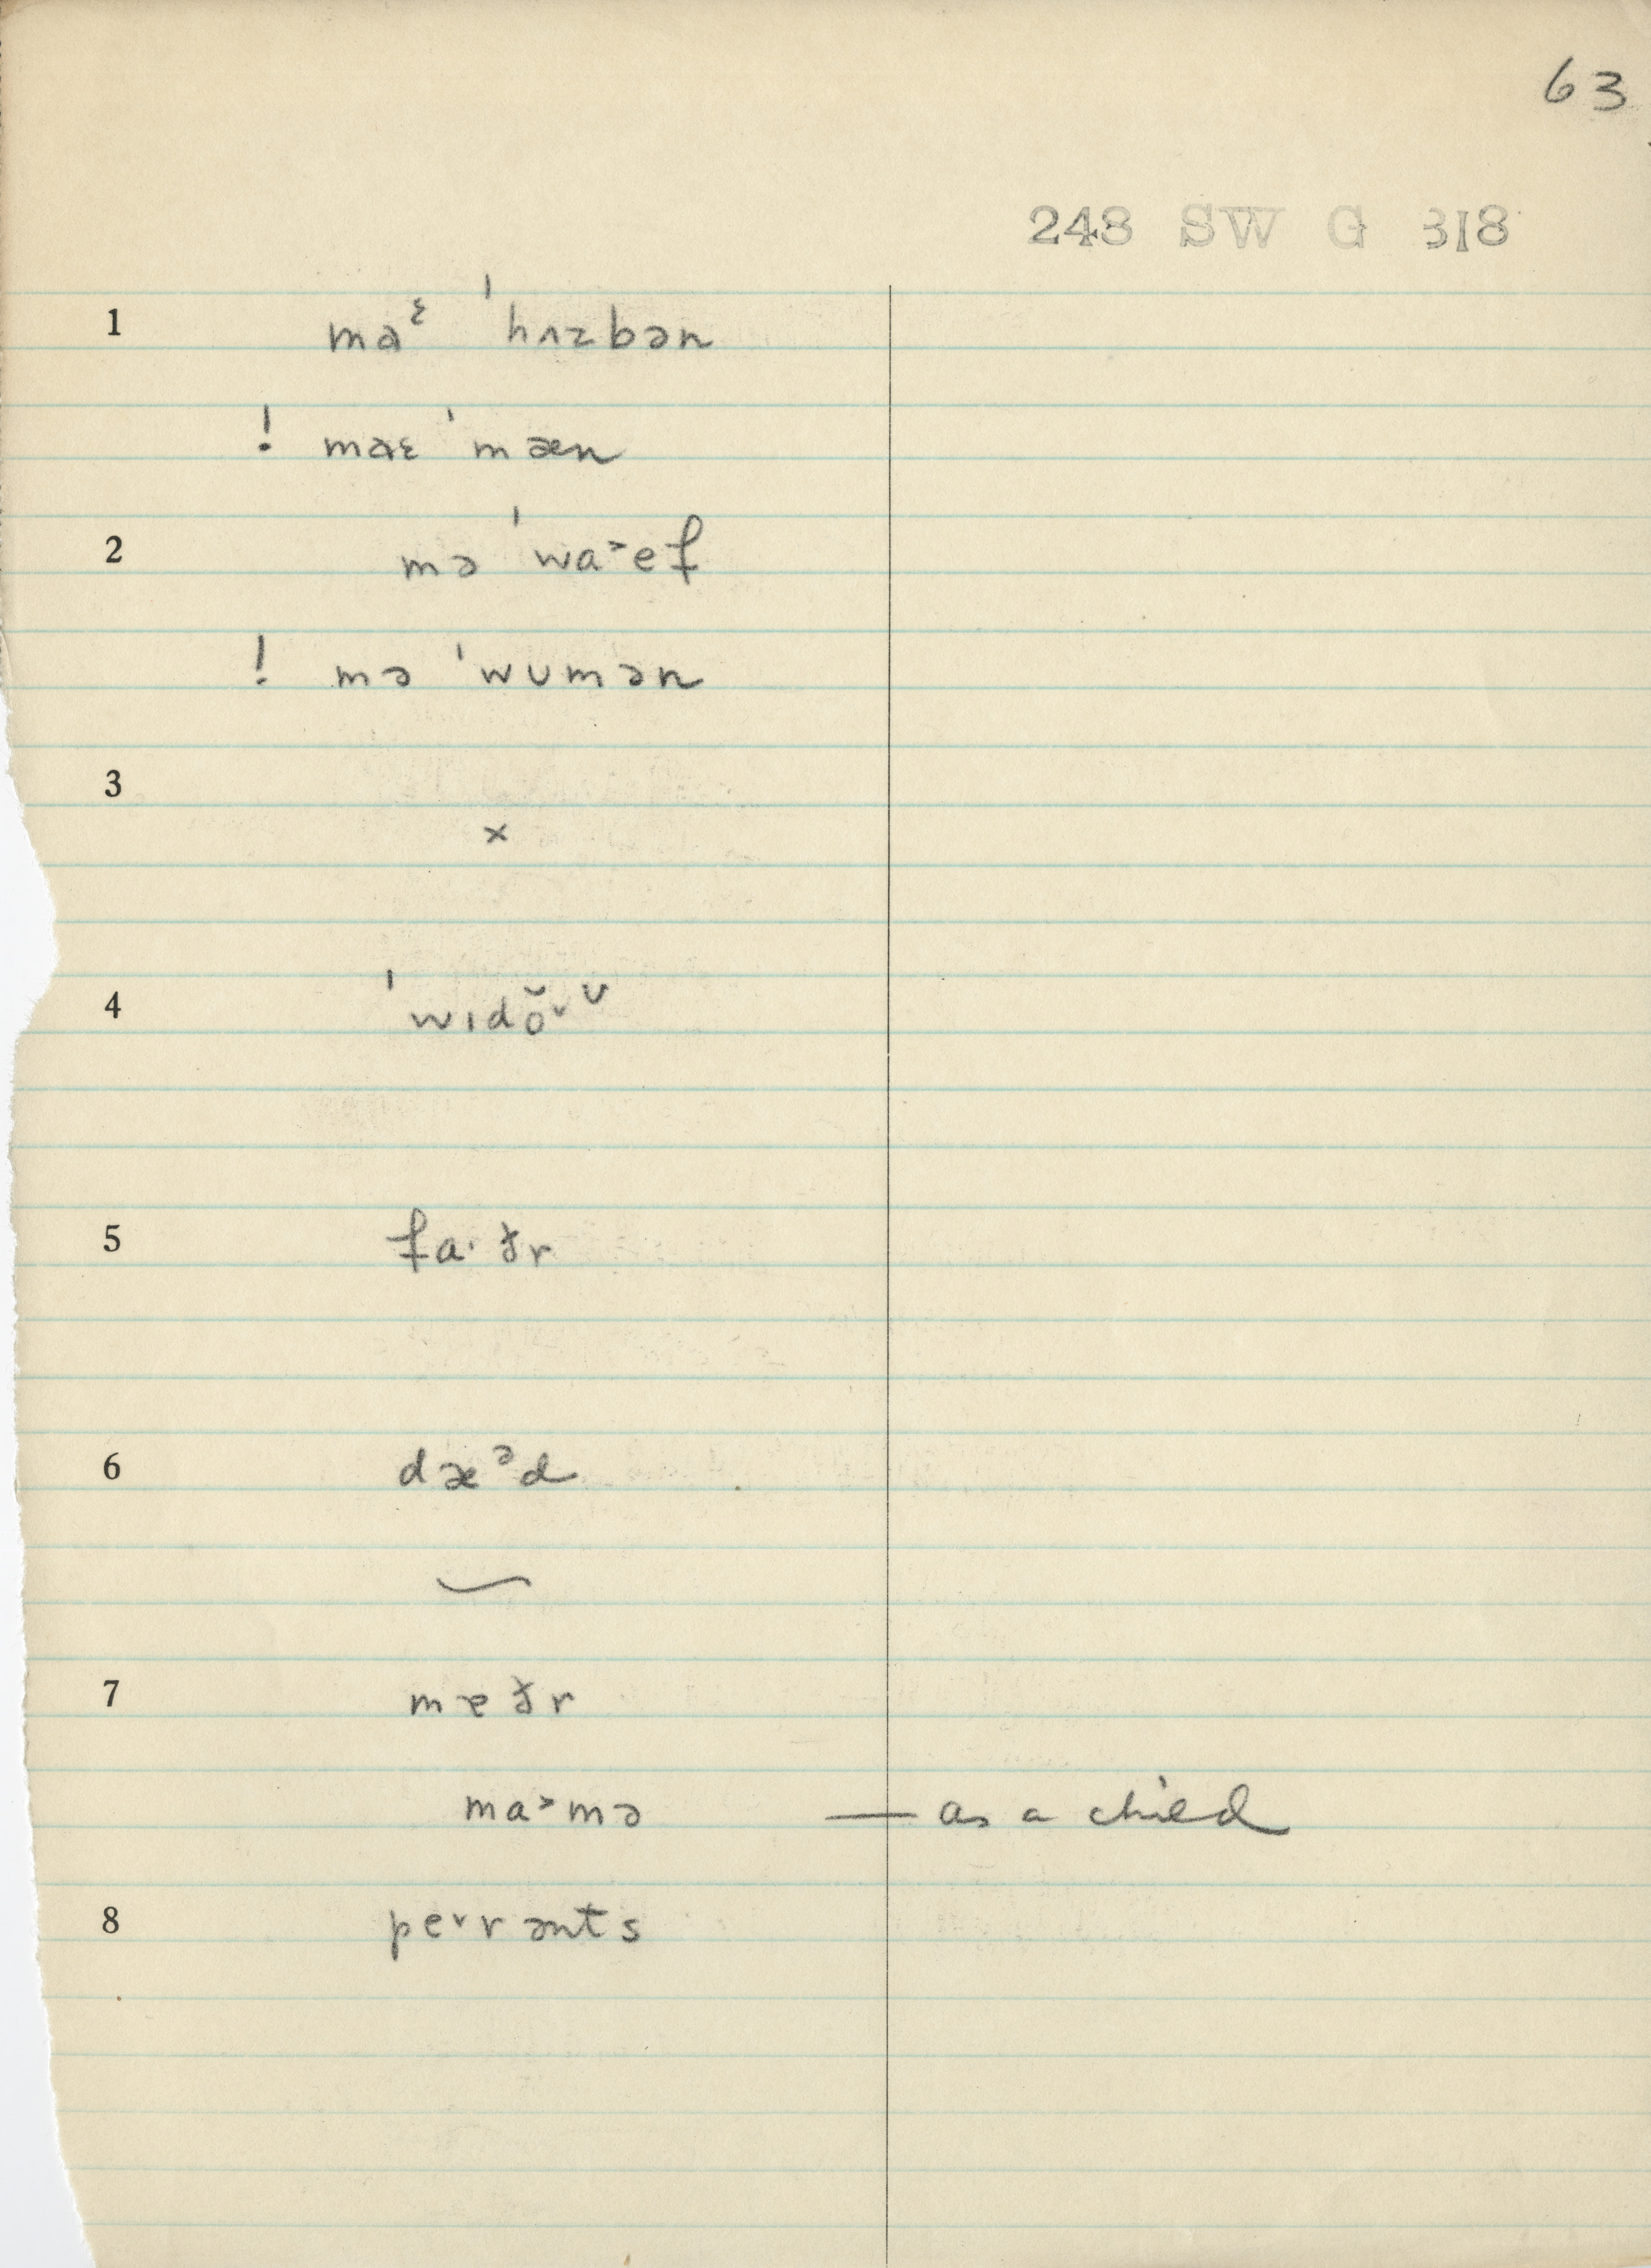 63
248 SW G 318
1 maᵋ ˈhʌzbən
! maɛ ˈmæn
2 mə ˈwa˃ef
! mə ˈwʊmən
3
×
4 ˈwɪdŏ˅ᶷ
5 fa·ðr
6 dæᵊd
7 mɐðr
ma˃mə — as a child
8 pe˅rənts